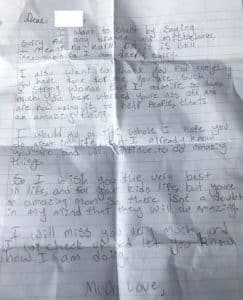 Dear
I want to start by saying
sorry for any drama and misbehaviour
I meant no harm but is still
inexcusable so I am deeply sorry.
I also want to thank you for everything
have done for me you're such
a strong woman that I admire when
much you have worked your ass off and
are now using it to help people, that's
an amazing thing.
I could go on whole I hope you
do great in life I already know
you are and will continue to do amazing
things.
So I wish you the very best
in life and for your kids life, but you're
an amazing mom so there isn't a doubt
in my mind that they will do amazing.
I will miss you very much and
I will check in and let you know
how I am doing.
Much Love,